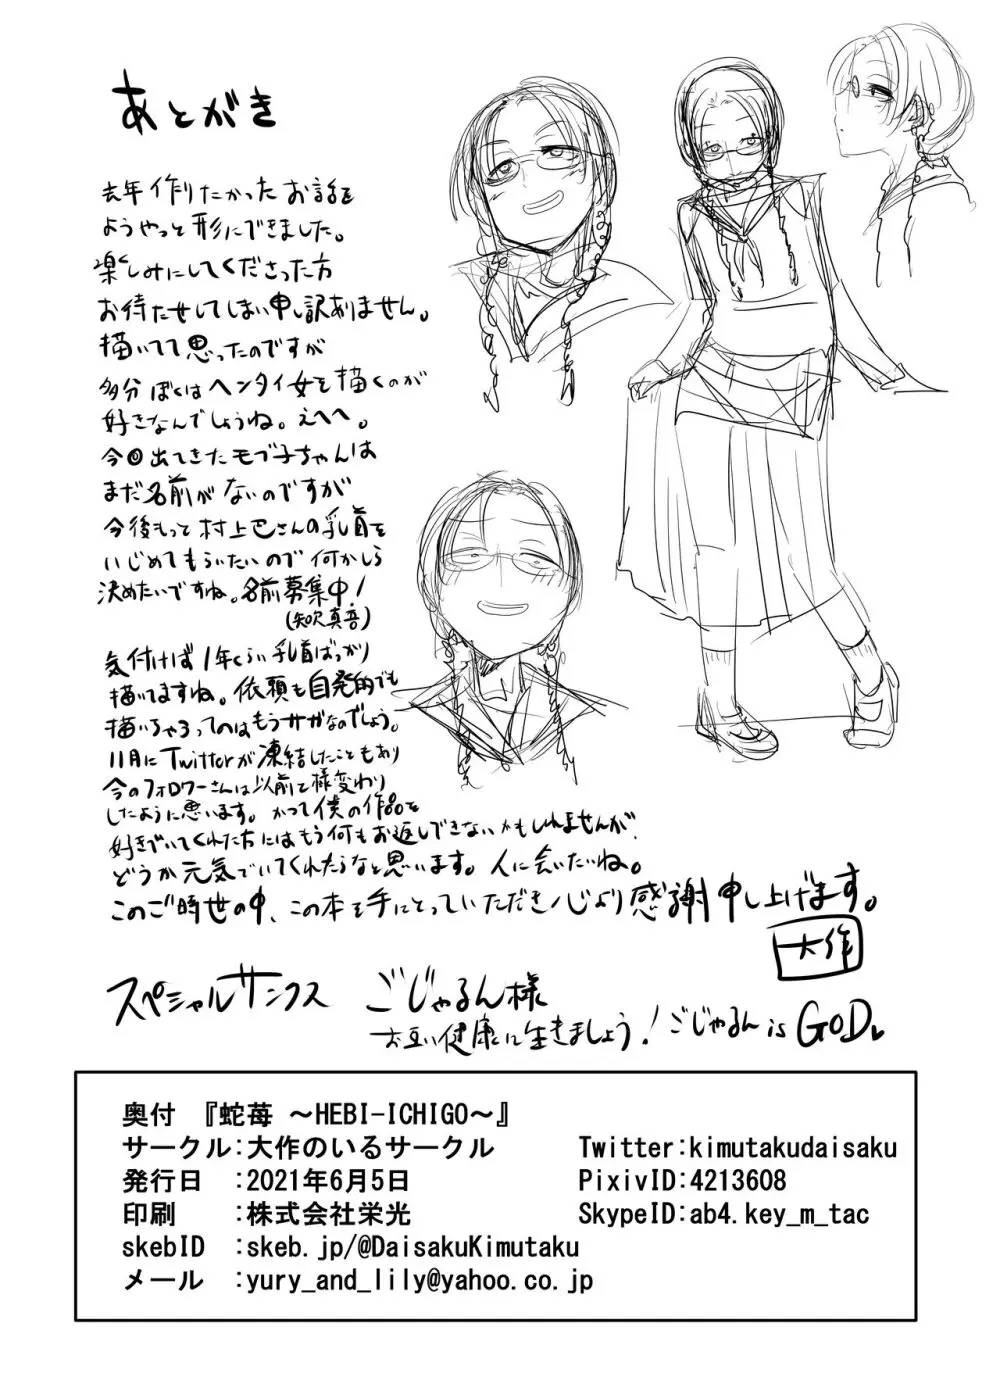 あとがき
去年作りたかったお話を
ようやっと形にできました。
楽しみにしてくださった方
お待たせしてしまい申し訳ありません。
描いてて思ったのですが
多分ぼくはヘンタイ女を描くのが
好きなんでしょうね。えへへ。
今回出てきたモブ子ちゃんは
まだ名前がないのですが
今後もっと村上巴さんの乳首を
いじめてもらいたいので何かしら
決めたいですね。名前募集中!
気付けば1年くらい乳首ばっかり
描いてますね。依頼も自発的でも
描いちゃうってのはもうサガなのでしょう。
11月にTwitterが凍結したこともあり
今のフォロワーさんは以前と様変わり
したように思います。かつて僕の作品を
好きでいてくれた方にはもう何もお返しできないかもしれませんが、
どうか元気でいてくれたらなと思います。人に会いたいね。
このご時世の中、この本を手にとっていただき心より感謝申し上げます。
大作
スペシャルサンクス ごじゃるん様
お互い健康に生きましょう!ごじゃるん is GOD♥
奥付 『蛇苺 ～HEBI-ICHIGO～』
サークル:大作のいるサークル Twitter:kimutakudaisaku
発行日 :2021年6月5日 PixivID:4213608
印刷 :株式会社栄光 SkypeID:ab4.key_m_tac
skebID :skeb.jp/@DaisakuKimutaku
メール :yury_and_lily@yahoo.co.jp